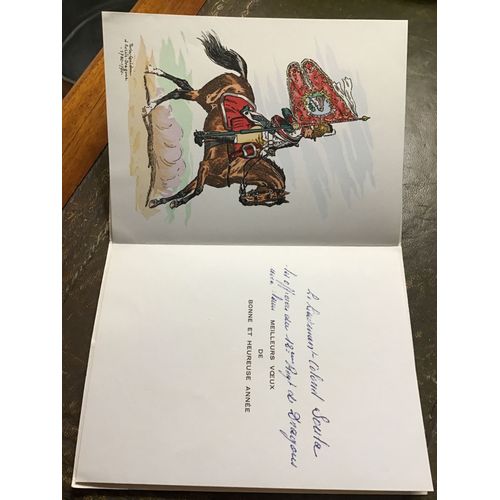 Le Lieutenant-Colonel Soula
les officiers du 12ème Régt de Dragons
avec leurs MEILLEURS VŒUX
DE
BONNE ET HEUREUSE ANNÉE